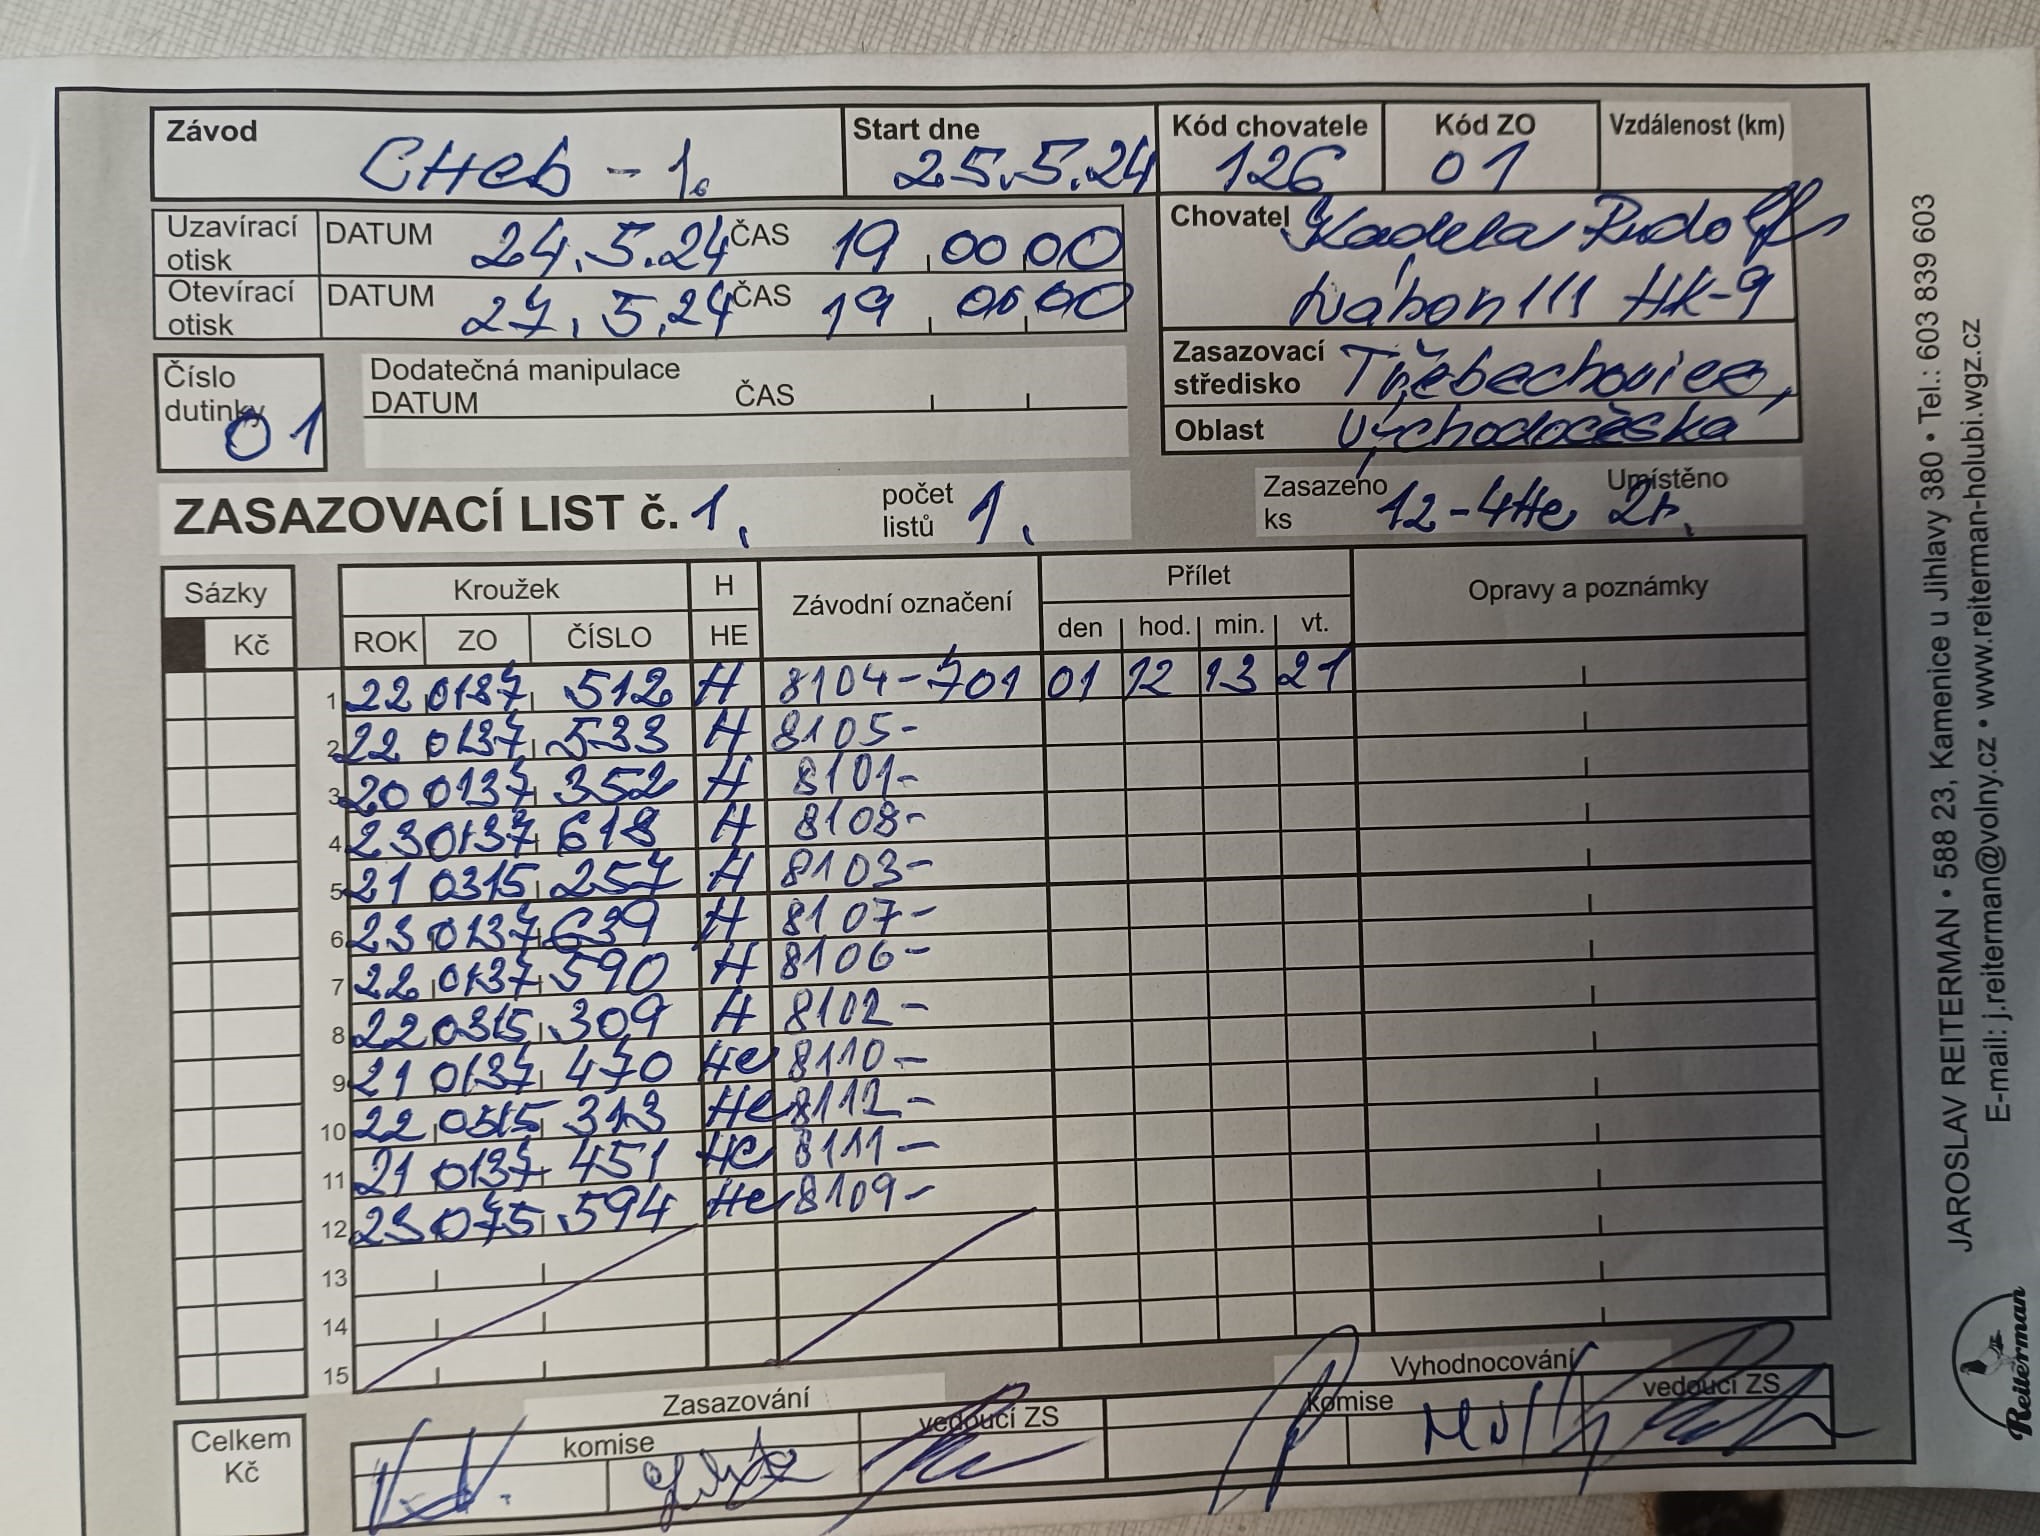 Závod CHeb - 1.
Start dne 25.5.24
Kód chovatele 126
Kód ZO 01
Vzdálenost (km)
Uzavírací otisk DATUM 24.5.24 ČAS 19 00 00
Otevírací otisk DATUM 27.5.24 ČAS 19 00 00
Chovatel Kadela Rudolf
111 HK-9
Číslo dutinky 01
Dodatečná manipulace
DATUM ČAS
Zasazovací středisko Třebechovice,
Oblast Východočeská
ZASAZOVACÍ LIST č. 1. počet listů 1.
Zasazeno ks 12-4He Umístěno 2h.
Sázky
Kč
Kroužek H Závodní označení Přílet Opravy a poznámky
ROK ZO ČÍSLO HE den hod. min. vt.
1 22 0137 512 H 8104-701 01 12 13 21
2 22 0137 533 H 8105-
3 20 0137 352 H 8101-
4 23 0137 618 H 8108-
5 21 0315 257 H 8103-
6 23 0137 639 H 8107-
7 22 0137 590 H 8106-
8 22 0315 309 H 8102-
9 21 0137 470 He 8110-
10 22 0315 313 He 8112-
11 21 0137 451 He 8111-
12 23 075 594 He 8109-
13
14
15
Celkem Kč
Zasazování
komise vedoucí ZS
Vyhodnocování
komise vedoucí ZS
JAROSLAV REITERMAN • 588 23, Kamenice u Jihlavy 380 • Tel.: 603 839 603
E-mail: j.reiterman@volny.cz • www.reiterman-holubi.wgz.cz
Reiterman